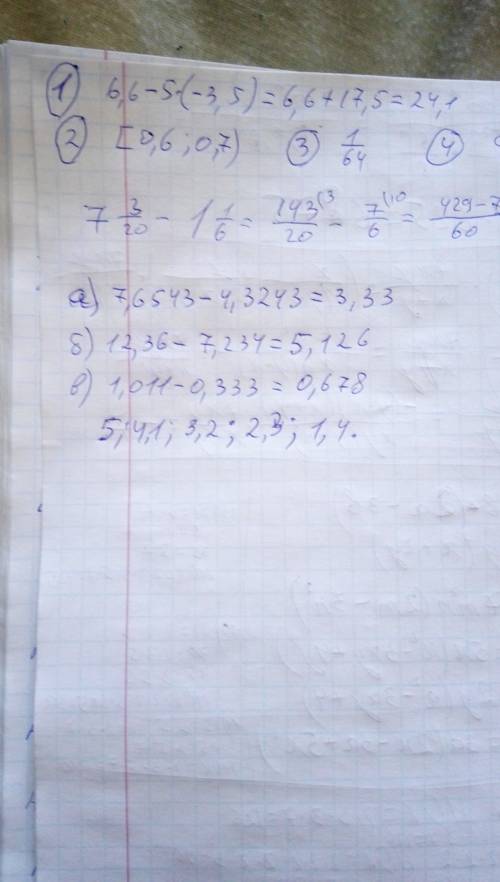 1 6,6-5·(-3,5)=6,6+17,5=24,1
2 [0,6;0,7) 3 1/64 4
7 3/20 - 1 1/6 = 143/20 (3 - 7/6 (10 = 429-7/60
а) 7,6543-4,3243=3,33
б) 12,36-7,234=5,126
в) 1,011-0,333=0,678
5; 4,1; 3,2; 2,3; 1,4.